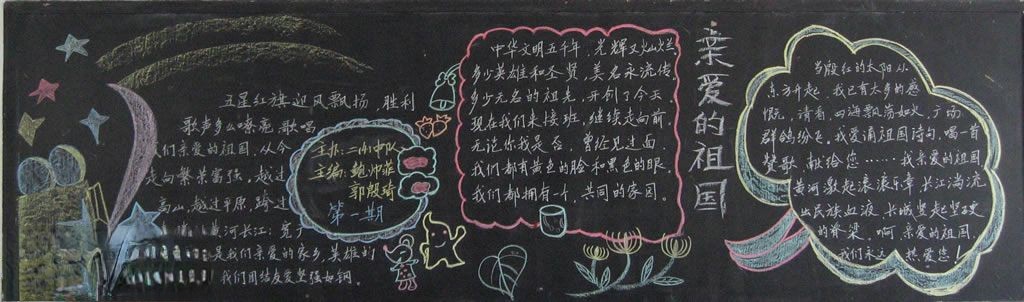 五星红旗迎风飘扬,胜利
歌声多么嘹亮,歌唱
我们亲爱的祖国,从今
走向繁荣富强。越过
高山,越过平原,跨过
黄河长江;宽广
是我们亲爱的家乡,英雄的
我们团结友爱坚强如钢
主办:二小中队
主编:鲍帅菲
郭殷琦
第一期
中华文明五千年,光辉又灿烂
多少英雄和圣贤,美名永流传
多少无名的祖先,开创了今天
现在我们来接班,继续走向前
无论你我是否,曾经见过面
我们都有黄色的脸和黑色的眼
我们都拥有一个,共同的家园。
亲爱的祖国
当殷红的太阳从
东方升起,我已有太多的感
慨,请看,四海飘荡如火,广场
群鸽纷飞。我爱诵祖国诗句,唱一首
赞歌,献给您……我亲爱的祖国
黄河激起滚滚乐章,长江淌流
出民族血液,长城竖起坚硬
的脊梁,啊,亲爱的祖国,
我们永远热爱您!